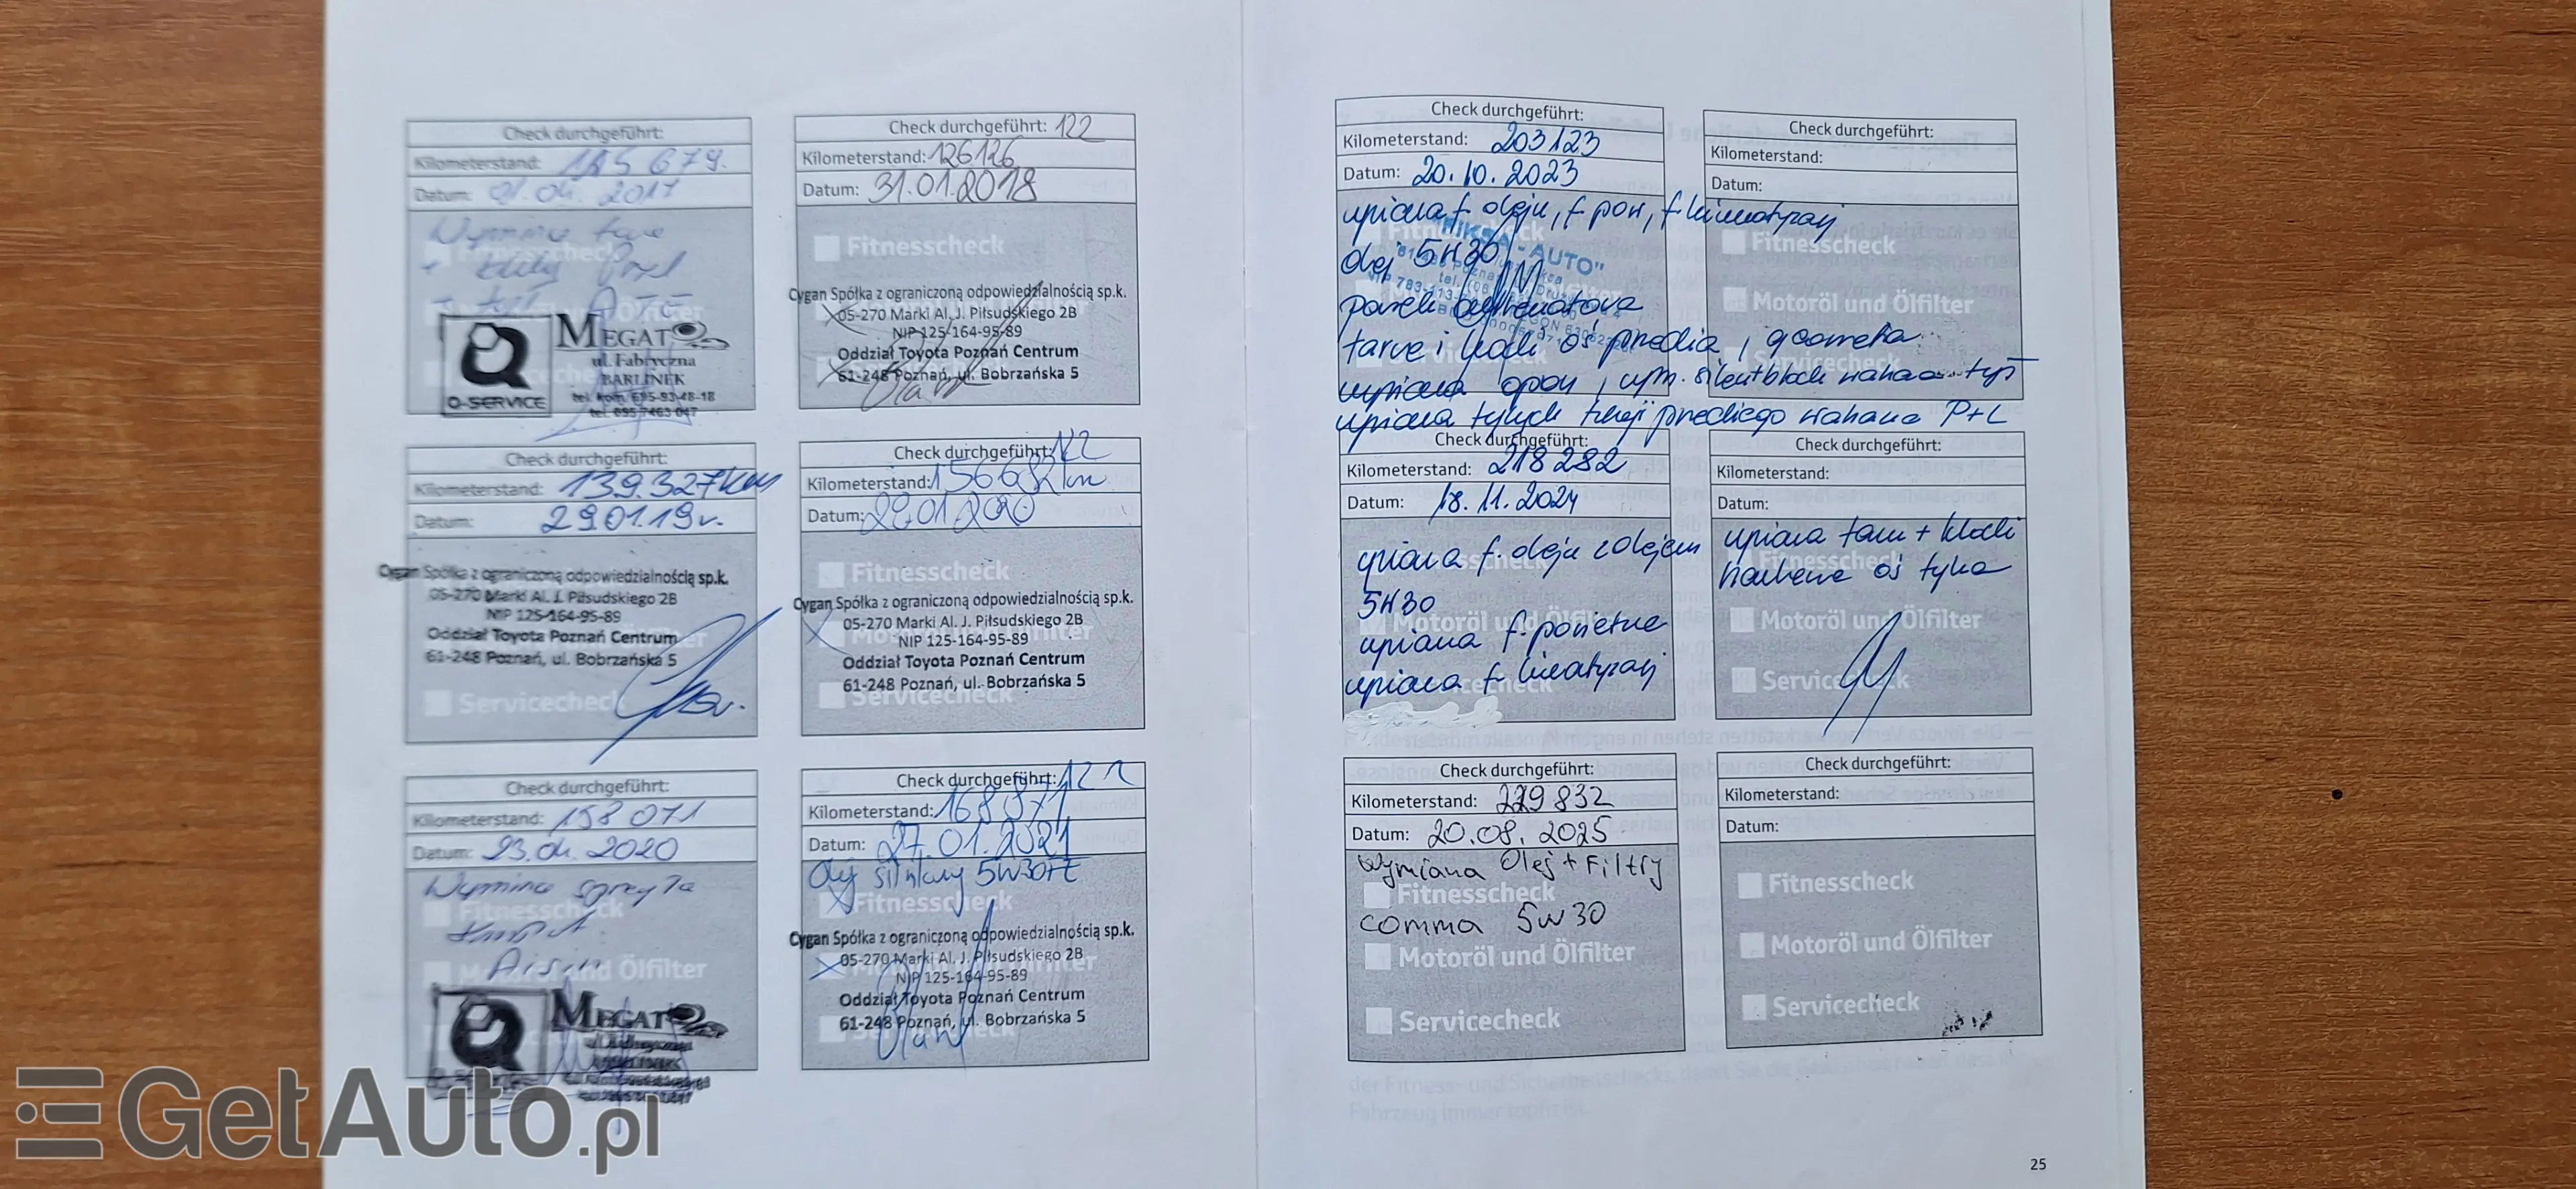 Check durchgeführt:
Kilometerstand: 125 679.
Datum: 2017
Wymiana
+
ATE
Q-SERVICE
MEGATO
ul. Fabryczna
BARLINEK
tel. kom. 695-93-48-18
tel. 095 7463 047
Check durchgeführt: 122
Kilometerstand: 126126
Datum: 31.01.2018
Fitnesscheck
Cygan Spółka z ograniczoną odpowiedzialnością sp.k.
05-270 Marki Al. J. Piłsudskiego 2B
NIP 125-164-95-89
Oddział Toyota Poznań Centrum
61-248 Poznań, ul. Bobrzańska 5
Check durchgeführt:
Kilometerstand: 139.327km
Datum: 29.01.19r.
Cygan Spółka z ograniczoną odpowiedzialnością sp.k.
05-270 Marki Al. J. Piłsudskiego 2B
NIP 125-164-95-89
Oddział Toyota Poznań Centrum
61-248 Poznań, ul. Bobrzańska 5
Servicecheck
Check durchgeführt: 122
Kilometerstand: 156682km
Datum: 29.01.2020
Fitnesscheck
Cygan Spółka z ograniczoną odpowiedzialnością sp.k.
05-270 Marki Al. J. Piłsudskiego 2B
NIP 125-164-95-89
Oddział Toyota Poznań Centrum
61-248 Poznań, ul. Bobrzańska 5
Servicecheck
Check durchgeführt:
Kilometerstand: 158 071
Datum: 23.04.2020
Wymiana sprzęgła
Fitnesscheck
Aisin
Motoröl und Ölfilter
MEGATO
Check durchgeführt: 122
Kilometerstand: 168971
Datum: 27.01.2021
Olej silnikowy 5W30FE
Fitnesscheck
Cygan Spółka z ograniczoną odpowiedzialnością sp.k.
05-270 Marki Al. J. Piłsudskiego 2B
NIP 125-164-95-89
Oddział Toyota Poznań Centrum
61-248 Poznań, ul. Bobrzańska 5
Check durchgeführt:
Kilometerstand: 203123
Datum: 20.10.2023
wymiana f. oleju, f pow, f klimatyzacji
"MIKSA-AUTO"
olej 5W30
pasek alternatora
tarcze i klocki oś przednia, geometria
wymiana opon, wym. silentblock wahacza tył
wymiana tylnych tulei przedniego wahacza P+L
Check durchgeführt:
Kilometerstand:
Datum:
Fitnesscheck
Motoröl und Ölfilter
Servicecheck
Check durchgeführt:
Kilometerstand: 218 282
Datum: 18.11.2024
wymiana f. oleju z olejem
5W30
Motoröl und Ölfilter
wymiana f. powietrza
wymiana f klimatyzacji
Check durchgeführt:
Kilometerstand:
Datum:
wymiana tarcz + klocki
Fitnesscheck
hamulcowe oś tylna
Motoröl und Ölfilter
Servicecheck
Check durchgeführt:
Kilometerstand: 229 832
Datum: 20.08.2025
Wymiana Olej + Filtry
Fitnesscheck
comma 5W30
Motoröl und Ölfilter
Servicecheck
Check durchgeführt:
Kilometerstand:
Datum:
Fitnesscheck
Motoröl und Ölfilter
Servicecheck
25
GetAuto.pl